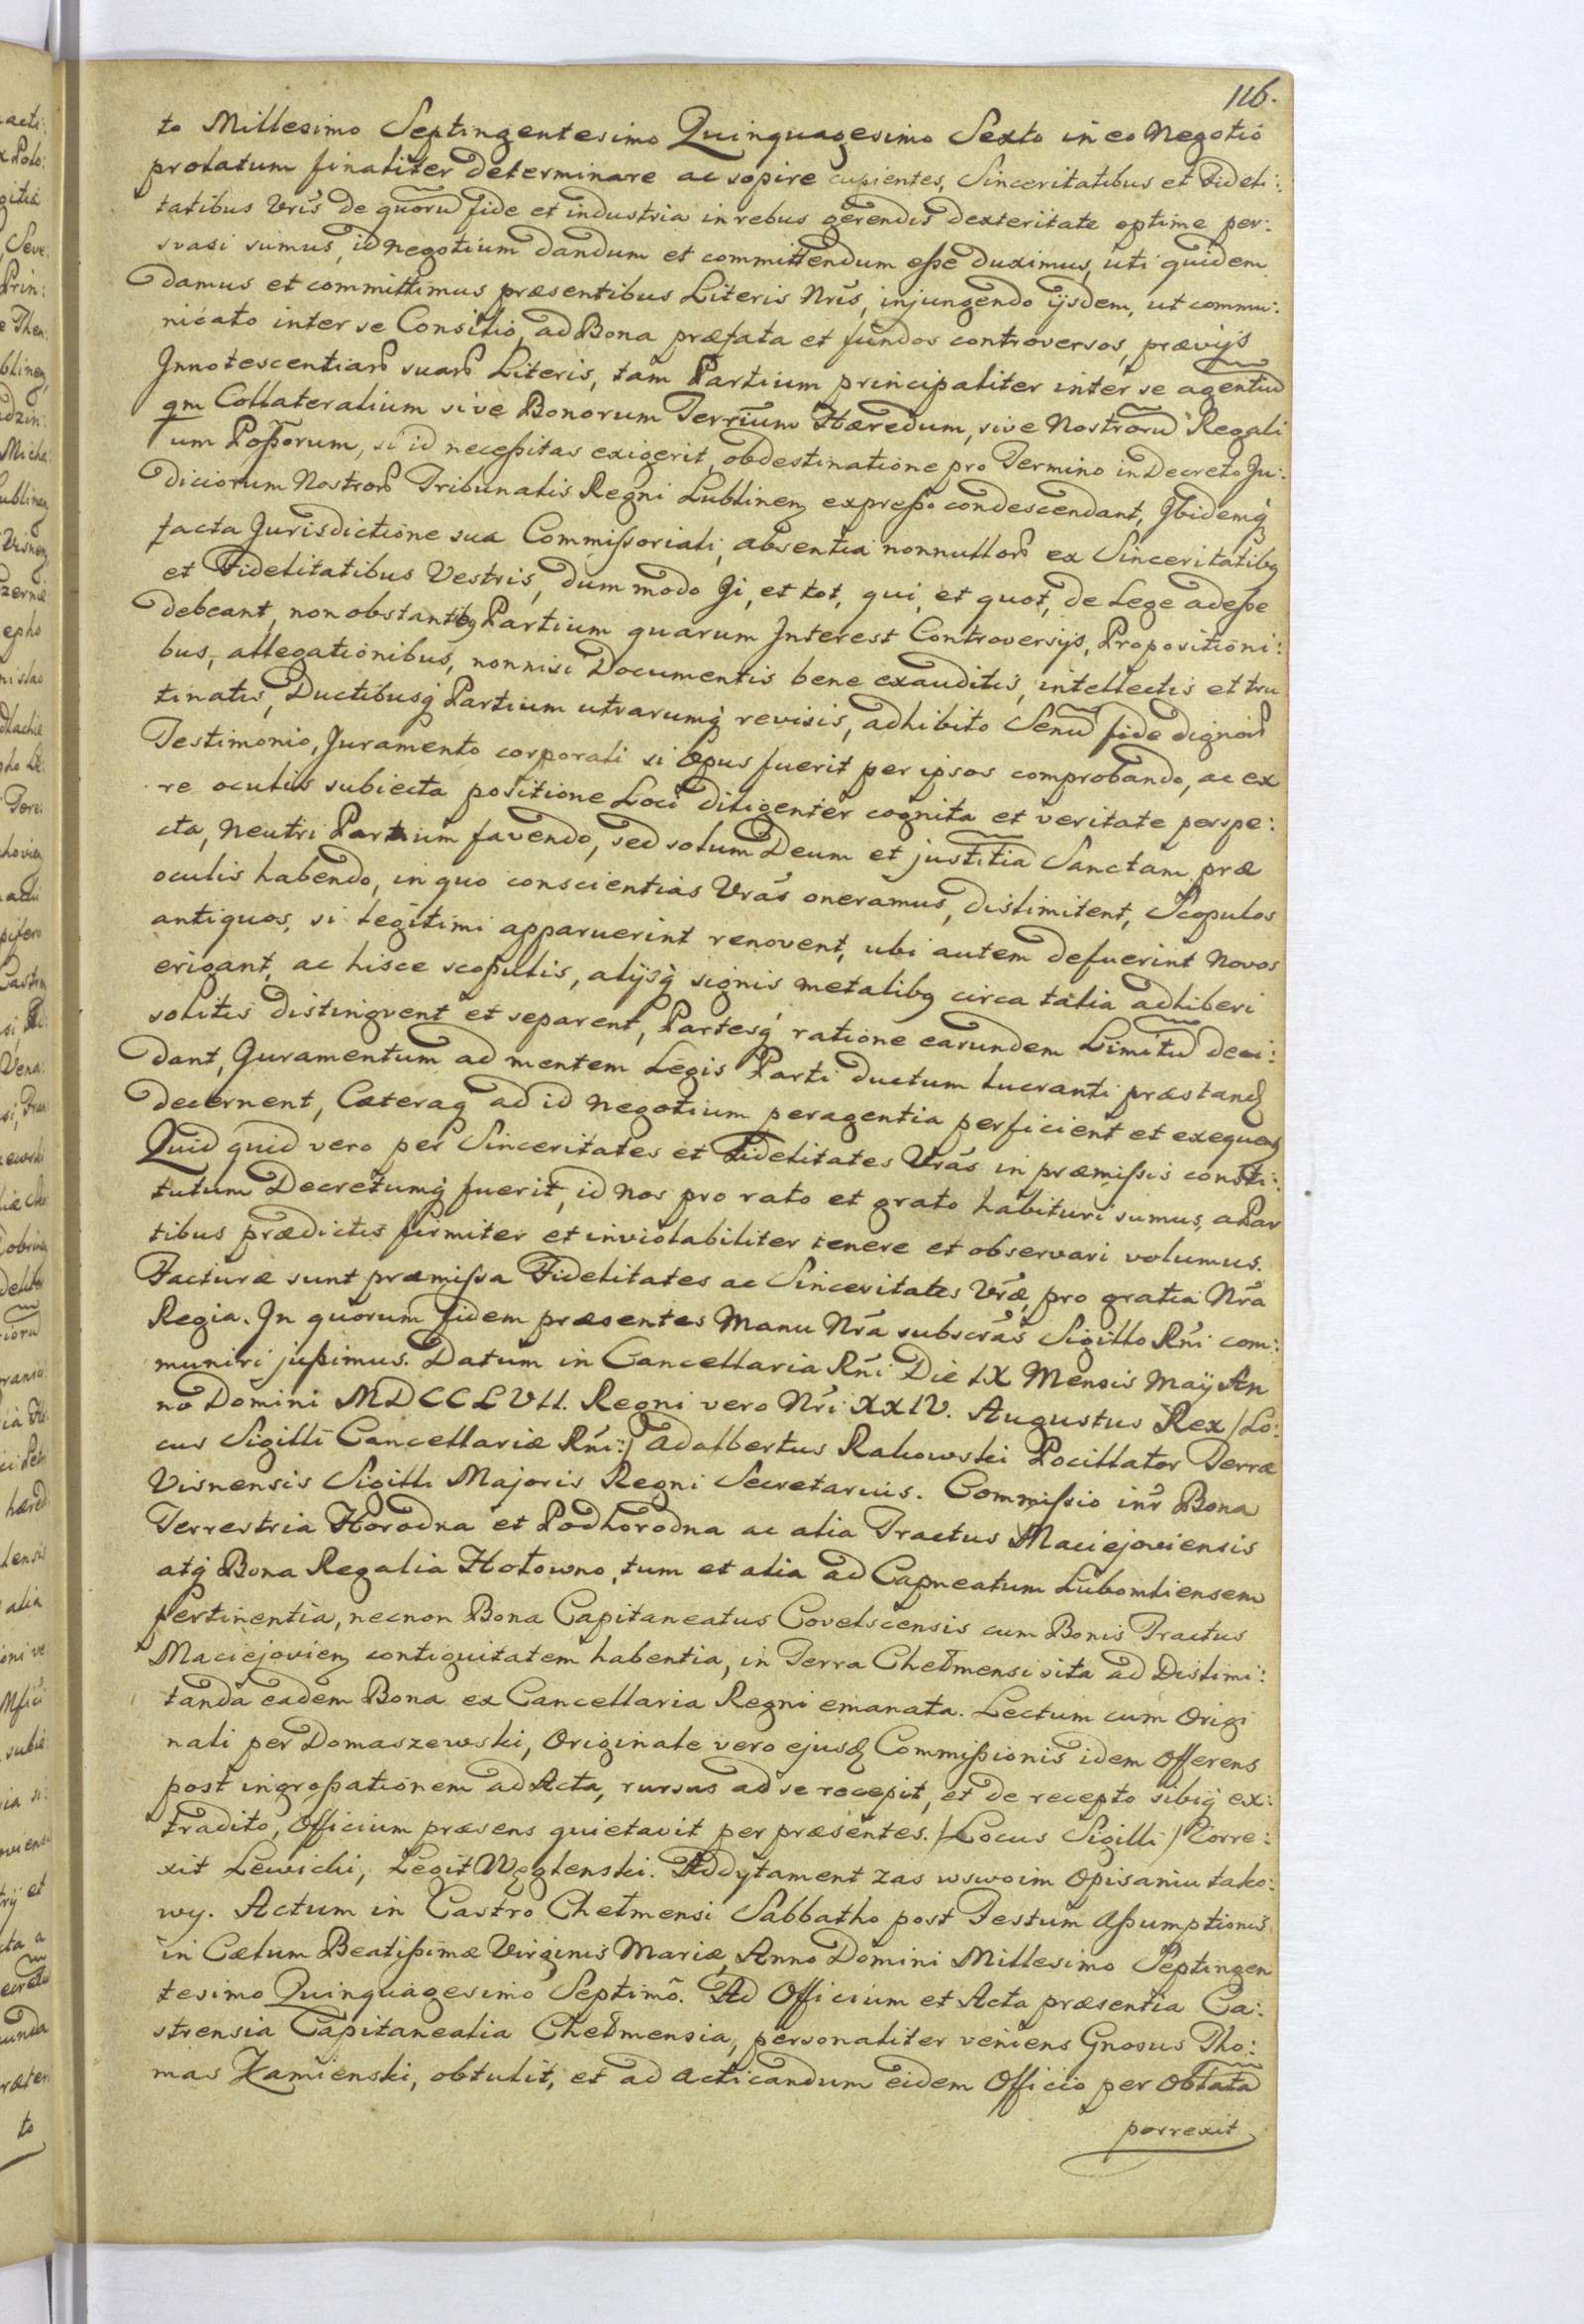 116.
to Millesimo Septingentesimo Quinquagesimo Sexto in eo Negotio
prolatum finaliter determinare ac sopire cupientes, Sinceritatibus et Fideli:
tatibus Vris de quoru fide et industria in rebus gerendis dexteritate optime per:
svasi sumus, id negotium dandum et committendum eße duximus, uti quidem
damus et committimus præsentibus Literis Nris, injungendo ijsdem, ut commu:
nicato inter se Consilio, ad Bona præfata et fundos controversos, prævijs
Innotescentiar suar Literis, tam Partium principaliter inter se agentiu
qm Collateralium sive Bonorum Terrium Hæredum, sive Nostroru Regali
um Poßorum, si id neceßitas exigerit, obdestinatione pro Termino in Decreto Ju:
diciorum Nostror Tribunalis Regni Lublinen expreßo condescendant, Ibidemq
facta Jurisdictione sua Commißoriali, absentia nonnullor ex Sinceritatibq
et Fidelitatibus Vestris, dum modo Ji, et tot, qui, et quot, de Lege adeße
debeant, non obstantibq Partium quarum Interest Controversijs, Propositioni:
bus, allegationibus, nonnisi Documentis bene exauditis, intellectis et tru
tinatis, Ductibusq Partium utrarumq revisis, adhibito Senu fide dignor
Testimonio, Juramento corporali si opus fuerit per ipsos comprobando, ac ex
re oculis subiecta positione Loci diligenter cognita et veritate perspe:
cta, Neutri Partium favendo, sed solum Deum et justitia Sanctam præ
oculis habendo, in quo conscientias Vras oneramus, dislimitent, Scopulos
antiquos, si legitimi apparuerint renovent, ubi autem defuerint Novos
erigant, ac hisce scopulis, alijsq signis metalibq circa talia adhiberi
solitis distingvent et separent, Partesq ratione earundem Limitu deci:
dant, Juramentum ad mentem Legis Parti ductum lucranti præstand
decernent, Cæteraq ad id negotium peragentia perficient et exequen
Quid quid vero per Sinceritates et Fidelitates Vras in præmißis consti:
tutum Decretumq fuerit, id Nos pro rato et grato habituri sumus, a Par
tibus prædictis firmiter et inviolabiliter tenere et observari volumus.
Facturæ sunt præmißa Fidelitates ac Sinceritates Vræ, pro gratia Nra
Regia. In quorum fidem præsentes Manu Nra subscras Sigillo Rni com:
muniri jußimus. Datum in Cancellaria Rni Die IX Mensis Maÿ An
no Domini MDCCLVII. Regni vero Nri XXIV. Augustus Rex /Lo:
cus Sigilli Cancellariæ Rni:/ Adalbertus Rakowski Pocillator Terræ
Visnensis Sigilli Majoris Regni Secretarius. Commißio inr Bona
Terrestria Horodna et Podhorodna ac alia Tractus Maciejoviensis
atq Bona Regalia Hołowno, tum et alia ad Capneatum Lubomliensem
pertinentia, necnon Bona Capitaneatus Covelscensis cum Bonis Tractus
Maciejovien contiguitatem habentia, in Terra Chełmensi sita ad Dislimi:
tanda eadem Bona ex Cancellaria Regni emanata. Lectum cum Origi
nali per Domaszewski, Originale vero ejusd Commißionis idem Offerens
post ingroßationem ad Acta, rursus ad se recepit, et de recepto sibiq ex:
tradito, Officium præsens quietavit per præsentes. /Locus Sigilli/ Corre:
xit Lewicki, Legit Węglenski. Addytament zas wswoim Opisaniu tako:
wy. Actum in Castro Chełmensi Sabbatho post Festum Aßumptionis
in Cælum Beatißimæ Virginis Mariæ, Anno Domini Millesimo Septingen
tesimo Quinquagesimo Septimo. Ad Officium et Acta præsentia Ca:
strensia Capitanealia Chełmensia, personaliter veniens Gnosus Tho:
mas Zamienski, obtulit, et ad acticandum eidem Officio per Oblata
porrexit